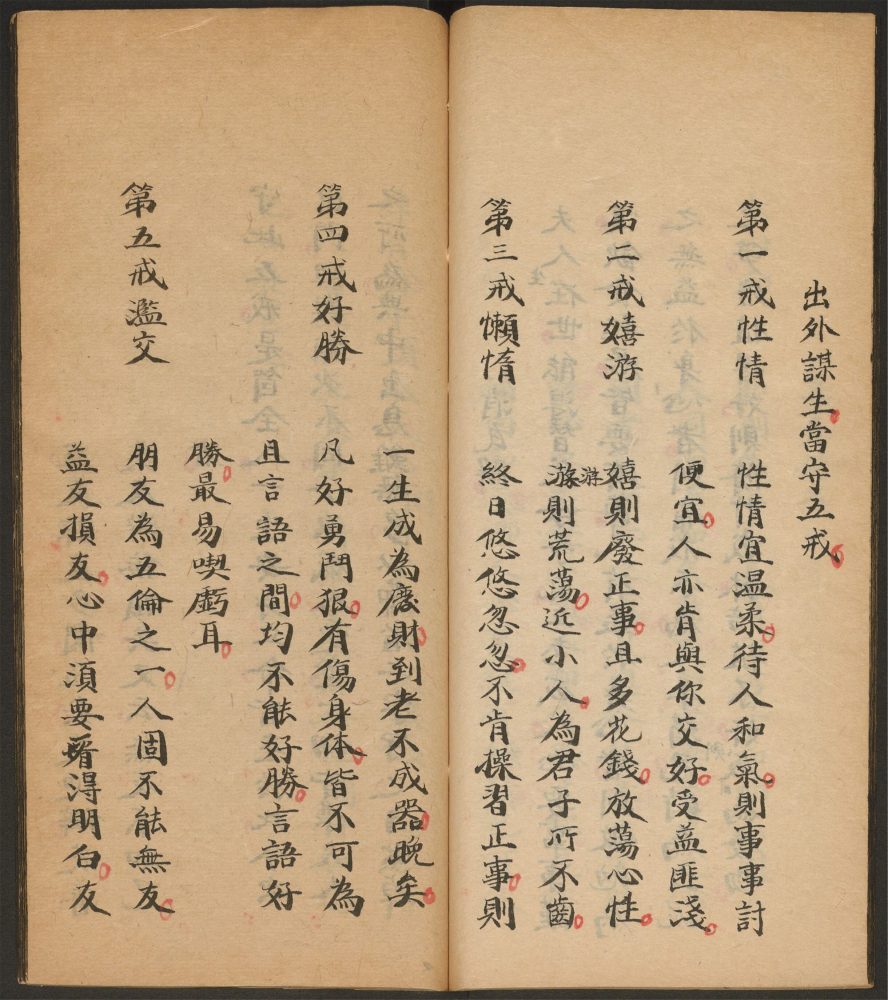 出外謀生。當守五戒。
第一戒性情　性情宜温柔。待人和氣。則事事討
便宜。人亦肯與你交好。受益匪淺。
第二戒嬉游　嬉則廢正事。且多花錢。放蕩心性。
游
游則荒蕩。近小人。為君子所不齒。
第三戒懶惰　終日悠悠忽忽。不肯操習正事。則
一生成為廢財。到老不成器。晚矣。
第四戒好勝　凡好勇鬥狠。有傷身体。皆不可為
且言語之間。均不能好勝。言語好
勝。最易喫虧耳。
第五戒濫交　朋友為五倫之一。人固不能無友。
益友損友。心中須要看得明白。友